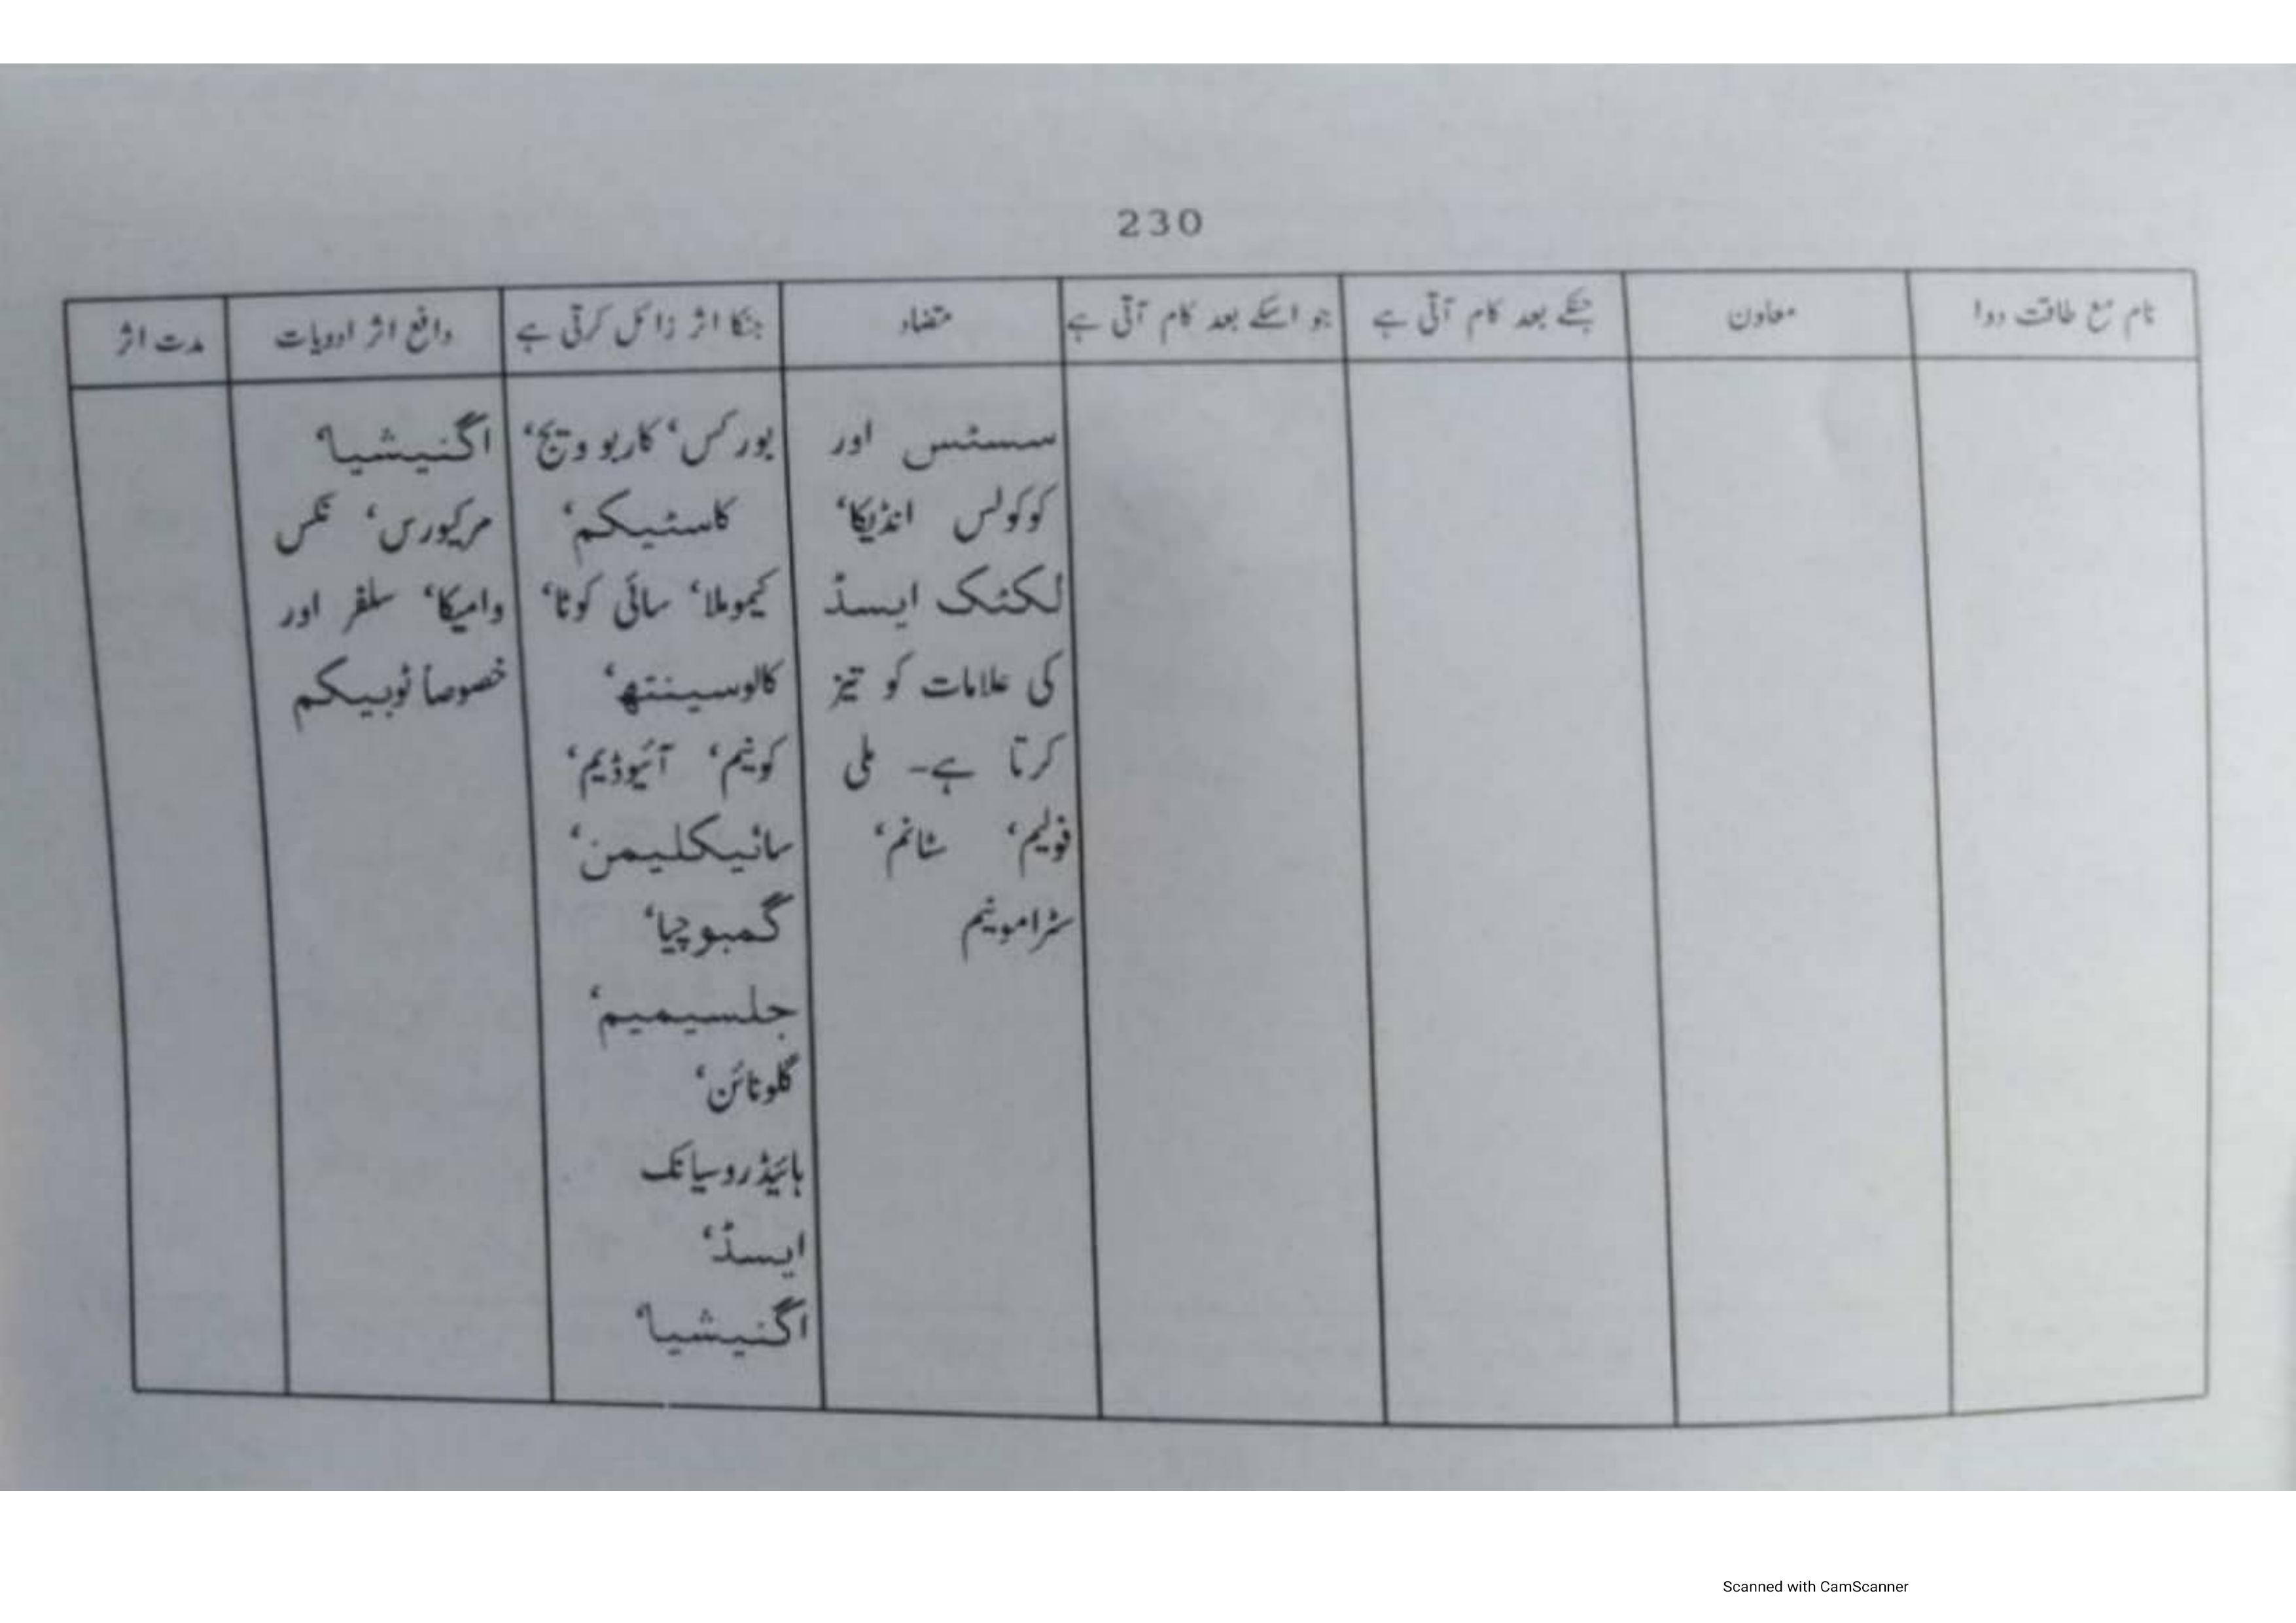 230
نام مع طاقت دوا
معاون
جنکے بعد کام آتی ہے
جو اسکے بعد کام آتی ہے
متضاد
جنکا اثر زائل کرتی ہے
دافع اثر ادویات
مدت اثر
سسٹس اور
کوکولس انڈیکا،
لکٹک ایسڈ
کی علامات کو تیز
کرتا ہے۔ ملی
فولیم، سٹانم،
سٹرامونیم
بورکس، کاربو ویج،
کاسٹیکم،
کیموملا، سائی کوٹا،
کالوسینتھ،
کونیم، آئیوڈیم،
سائیکلیمن،
گمبوچیا،
جلسیمیم،
گلونائن،
ہائیڈروسیانک
ایسڈ،
اگنیشیا،
اگنیشیا،
مرکیورس، نکس
وامیکا، سلفر اور
خصوصاً ٹوبیکم
Scanned with CamScanner